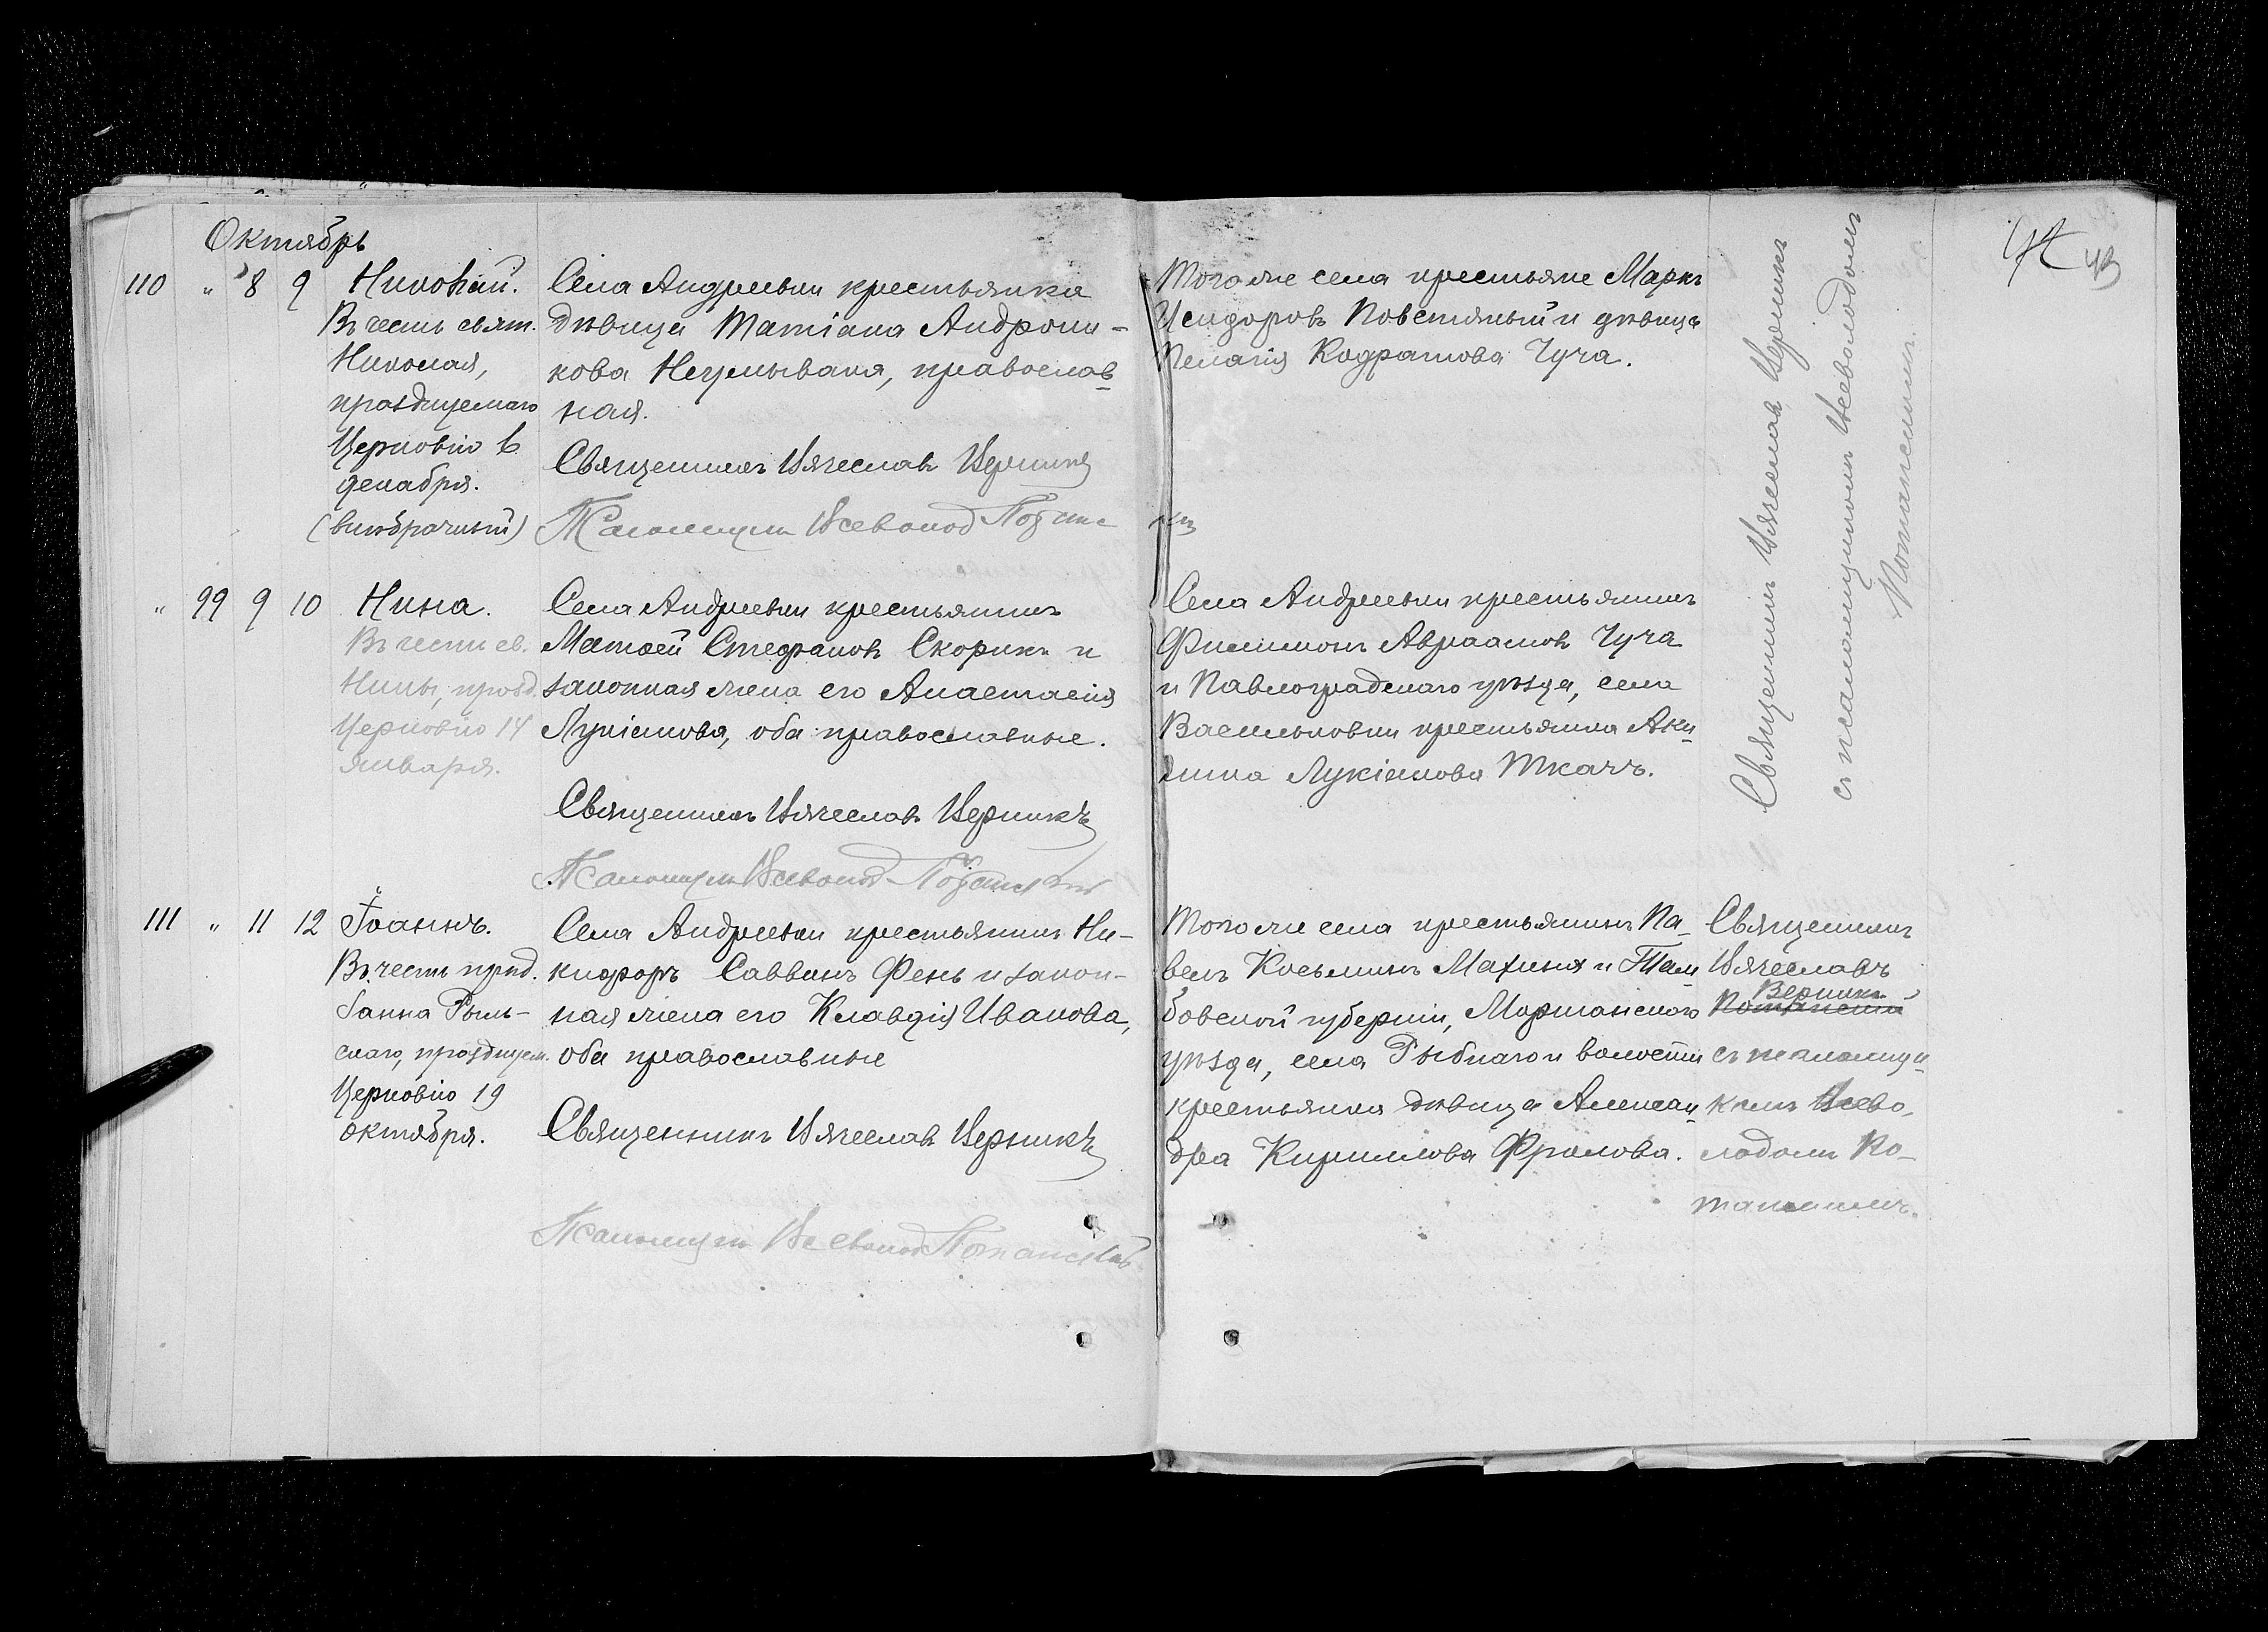 Октябрь
110 " 8 9 Николай.
Въ честь свят.
Николая,
празднуемаго
Церковію 6
декабря.
(внѣбрачный)
Села Андреевки крестьянка
дѣвица Татіана Андрони-
кова Неумывака, православ
ная.
Священникъ Вячеславъ Верникъ
Псаломщикъ Всеволод
Того же села крестьяне Маркъ
Исидоровъ Повстяный и дѣвица
Пелагія Кодратова Чуча.
" 99 9 10 Нина.
Въ честь св.
Нины, празд.
Церковію 14
января.
Села Андреевки крестьянинъ
Матѳей Стефановъ Скорикъ и
законная жена его Анастасія
Лукіанова, оба православные.
Священникъ Вячеславъ Верникъ
Псаломщикъ Всеволод Потанскій
Села Андреевки крестьянинъ
Филимонъ Авраамовъ Чуча
и Павлоградскаго уѣзда, села
Васильковки крестьянка Аки
лина Лукіанова Ткачъ.
Священникъ Вячеславъ Верникъ
съ псаломщикомъ Всеволодомъ
Потанскимъ.
111 " 11 12 Іоаннъ.
Въ честь прпд.
Іанна Рыль-
скаго, празднуем.
Церковію 19
октября.
Села Андреевки крестьянинъ Ни-
кифоръ Саввинъ Фень и закон-
ная жена его Клавдія Иванова,
оба православные
Священникъ Вячеславъ Верникъ
Псаломщикъ Всеволод Потанскій
Того же села крестьянинъ Па-
велъ Косьминъ Махиня и Там
бовской губерніи, Моршанскаго
уѣзда, села Рыбнаго и волости
крестьянка дѣвица Алексан
дра Кириллова Фролова.
Священникъ
Вячеславъ
Верникъ
Потанскій
съ псаломщи
комъ Всево-
лодомъ По-
танскимъ.
43